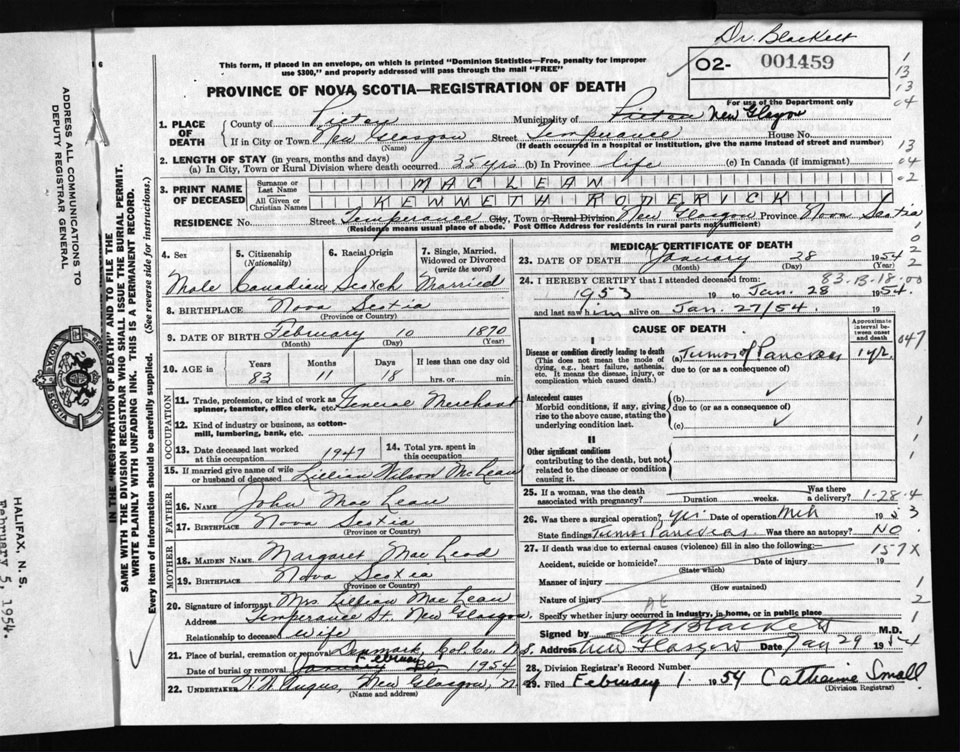 Dr. Blackett
This form, if placed in an envelope, on which is printed "Dominion Statistics—Free, penalty for improper
use $300," and properly addressed will pass through the mail "FREE"
02- 001459
PROVINCE OF NOVA SCOTIA—REGISTRATION OF DEATH
For use of the Department only
1. PLACE OF DEATH
County of Pictou Municipality of Pictou New Glasgow
If in City or Town New Glasgow Street Temperance House No.
(Name) (If death occurred in a hospital or institution, give the name instead of street and number)
2. LENGTH OF STAY (in years, months and days)
(a) In City, Town or Rural Division where death occurred 35 yrs (b) In Province life (c) In Canada (if immigrant)
3. PRINT NAME OF DECEASED
Surname or Last Name MACLEAN
All Given or Christian Names KENNETH RODERICK
RESIDENCE No. Street Temperance City, Town or Rural Division New Glasgow Province Nova Scotia
(Residence means usual place of abode. Post Office Address for residents in rural parts not sufficient)
4. Sex Male
5. Citizenship (Nationality) Canadian
6. Racial Origin Scotch
7. Single, Married, Widowed or Divorced (write the word) Married
8. BIRTHPLACE Nova Scotia
(Province or Country)
9. DATE OF BIRTH February 10 1870
(Month) (Day) (Year)
10. AGE in Years 83 Months 11 Days 18 If less than one day old hrs. or min.
OCCUPATION
11. Trade, profession, or kind of work as spinner, teamster, office clerk, etc. General Merchant
12. Kind of industry or business, as cotton-mill, lumbering, bank, etc.
13. Date deceased last worked at this occupation 1947
14. Total yrs. spent in this occupation
15. If married give name of wife or husband of deceased Lillian Wilson McLean
FATHER
16. NAME John MacLean
17. BIRTHPLACE Nova Scotia
(Province or Country)
MOTHER
18. MAIDEN NAME Margaret MacLeod
19. BIRTHPLACE Nova Scotia
(Province or Country)
20. Signature of informant Mrs Lillian MacLean
Address Temperance St. New Glasgow
Relationship to deceased wife
21. Place of burial, cremation or removal Denmark, Col. Co. N.S.
Date of burial or removal January February 1954
22. UNDERTAKER New Glasgow, N.S.
(Name and address)
MEDICAL CERTIFICATE OF DEATH
23. DATE OF DEATH January 28 1954
(Month) (Day) (Year)
83-B-18-00
24. I HEREBY CERTIFY that I attended deceased from:
1953 19 to Jan. 28 1954.
and last saw him alive on Jan. 27/54. 19
CAUSE OF DEATH
Approximate interval between onset and death
I
Disease or condition directly leading to death (a) Tumor of Pancreas 1 yr.
(This does not mean the mode of dying, e.g., heart failure, asthenia, etc. It means the disease, injury, or complication which caused death.)
due to (or as a consequence of)
Antecedent causes
Morbid conditions, if any, giving rise to the above cause, stating the underlying condition last.
(b)
due to (or as a consequence of)
(c)
II
Other significant conditions
contributing to the death, but not related to the disease or condition causing it.
25. If a woman, was the death associated with pregnancy? Duration weeks. Was there a delivery? 1-28-4
26. Was there a surgical operation? yes Date of operation 1953
State findings Tumor Pancreas Was there an autopsy? NO
27. If death was due to external causes (violence) fill in also the following:— 157X
Accident, suicide or homicide? Date of injury 19
(State which)
Manner of injury
(How sustained)
Nature of injury
Specify whether injury occurred in industry, in home, or in public place
Signed by Blackett M.D.
Address New Glasgow Date Jan 29 1954
28. Division Registrar's Record Number
29. Filed February 1. 1954 Catherine Small
(Division Registrar)
ADDRESS ALL COMMUNICATIONS TO
DEPUTY REGISTRAR GENERAL
HALIFAX, N. S.
February 5, 1954.
IN THE "REGISTRATION OF DEATH" AND TO FILE THE
SAME WITH THE DIVISION REGISTRAR WHO SHALL ISSUE THE BURIAL PERMIT.
WRITE PLAINLY WITH UNFADING INK. THIS IS A PERMANENT RECORD.
Every item of information should be carefully supplied. (See reverse side for instructions.)